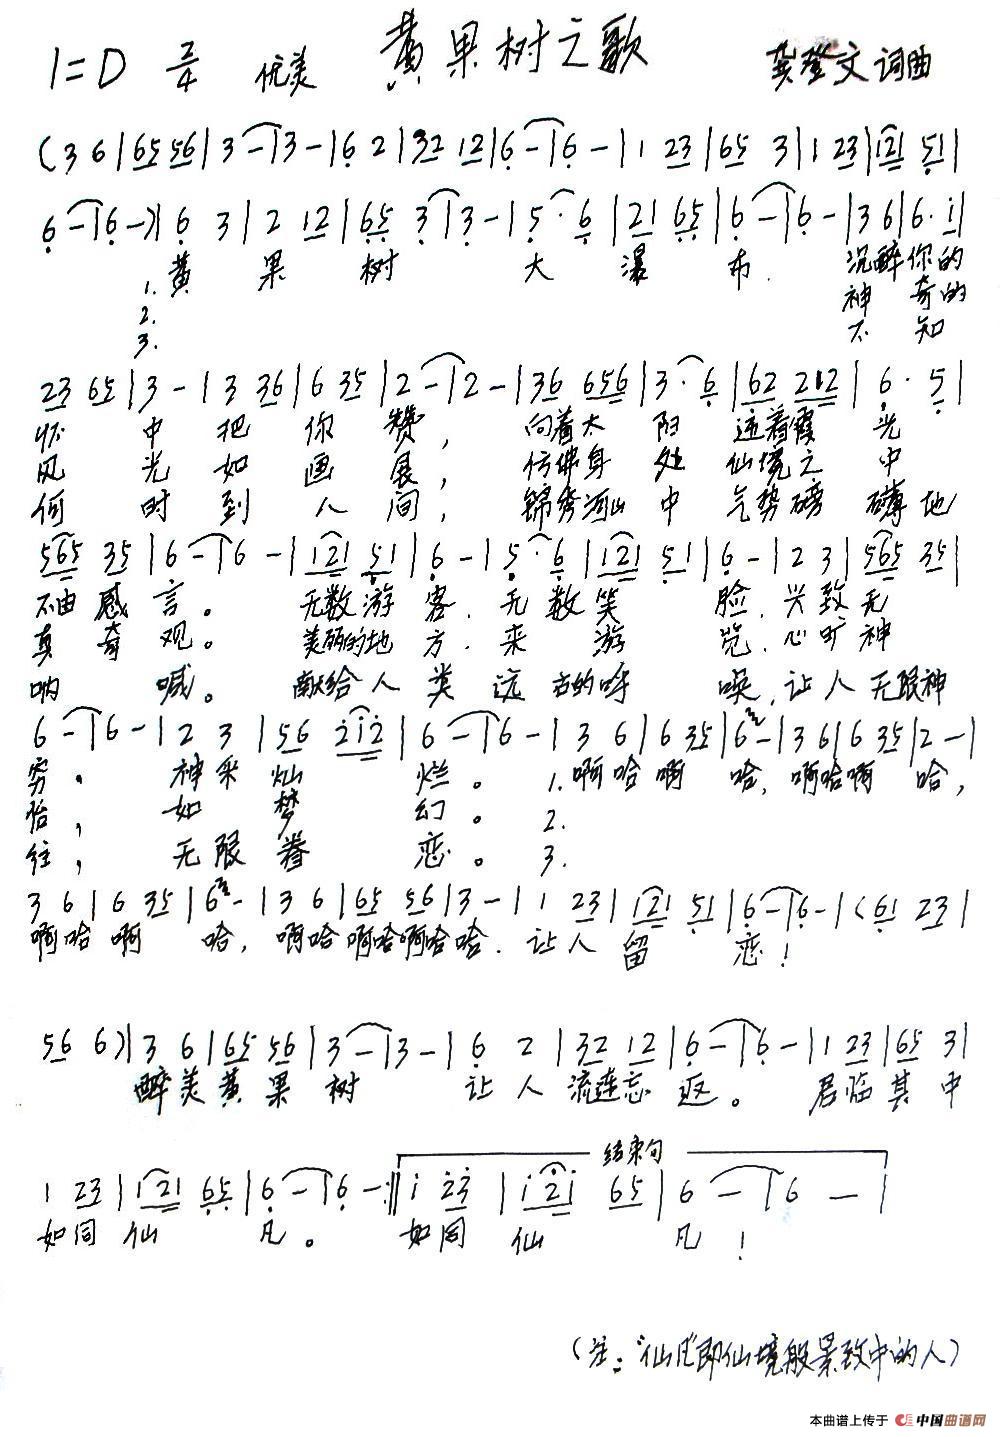 黄果树之歌
1=D 2/4 优美 龚登文词曲
(3 6|65 56|3 -|3 -|6 2|32 12|6 -|6 -|1 23|65 3|1 23|121 51|
6 -|6 -)|6 3|2 12|65 3|3 -|5 · 6|21 65|6 -|6 -|3 6|6 · i|
1. 黄 果 树 大 瀑 布. 沉醉你的
2. 神 奇的
3. 不 知
23 65|3 -|3 36|6 35|2 -|2 -|36 656|3 · 6|62 212|6 · 5|
怀 中 把 你 赞, 向着太 阳 迎着霞 光
风 光 如 画 展, 仿佛身 处 仙境之 中
何 时 到 人 间, 锦秀河山 中 气势磅 礴 地
565 35|6 -|6 -|121 51|6 -|5 · 6|121 51|6 -|2 3|565 35|
不由 感 言。 无数游 客. 无 数 笑 脸. 兴致 无
真 奇 观。 美丽的地 方. 来 游 览. 心旷 神
呐 喊。 献给人 类 远 古的呼 唤. 让人 无限神
6 -|6 -|2 3|56 212|6 -|6 -|3 6|6 35|6 -|3 6|6 35|2 -|
穷, 神采 灿 烂。 1.啊哈啊 哈, 啊哈啊 哈,
怡, 如 梦 幻。 2.
往, 无限 眷 恋。 3.
3 6|6 35|6 -|3 6|65 56|3 -|1 23|121 51|6 -|6 -|(61 23|
啊哈 啊 哈, 啊哈 啊哈啊哈哈. 让人 留 恋!
56 6)|3 6|65 56|3 -|3 -|6 2|32 12|6 -|6 -|1 23|65 3|
醉美黄果 树 让人 流连忘 返。 君临其中
结束句
1 23|121 65|6 -|6 -:‖i 23|i2i 65|6 -|6 -|
如同 仙 凡。 如同 仙 凡!
(注:“仙凡”即仙境般景致中的人)
本曲谱上传于 中国曲谱网